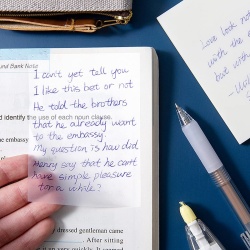 und Bank Note
I can't yet tell you
I like this bet or not
He told the brothers
that he already want
to the embassy.
My question is how did
Henry say that he can't
have simple pleasure
for a while?
d identify the use of each noun clause.
embassy
dressed gentlemen came
After sitting
up very quickly. It seemed
Love look not
with the
but with